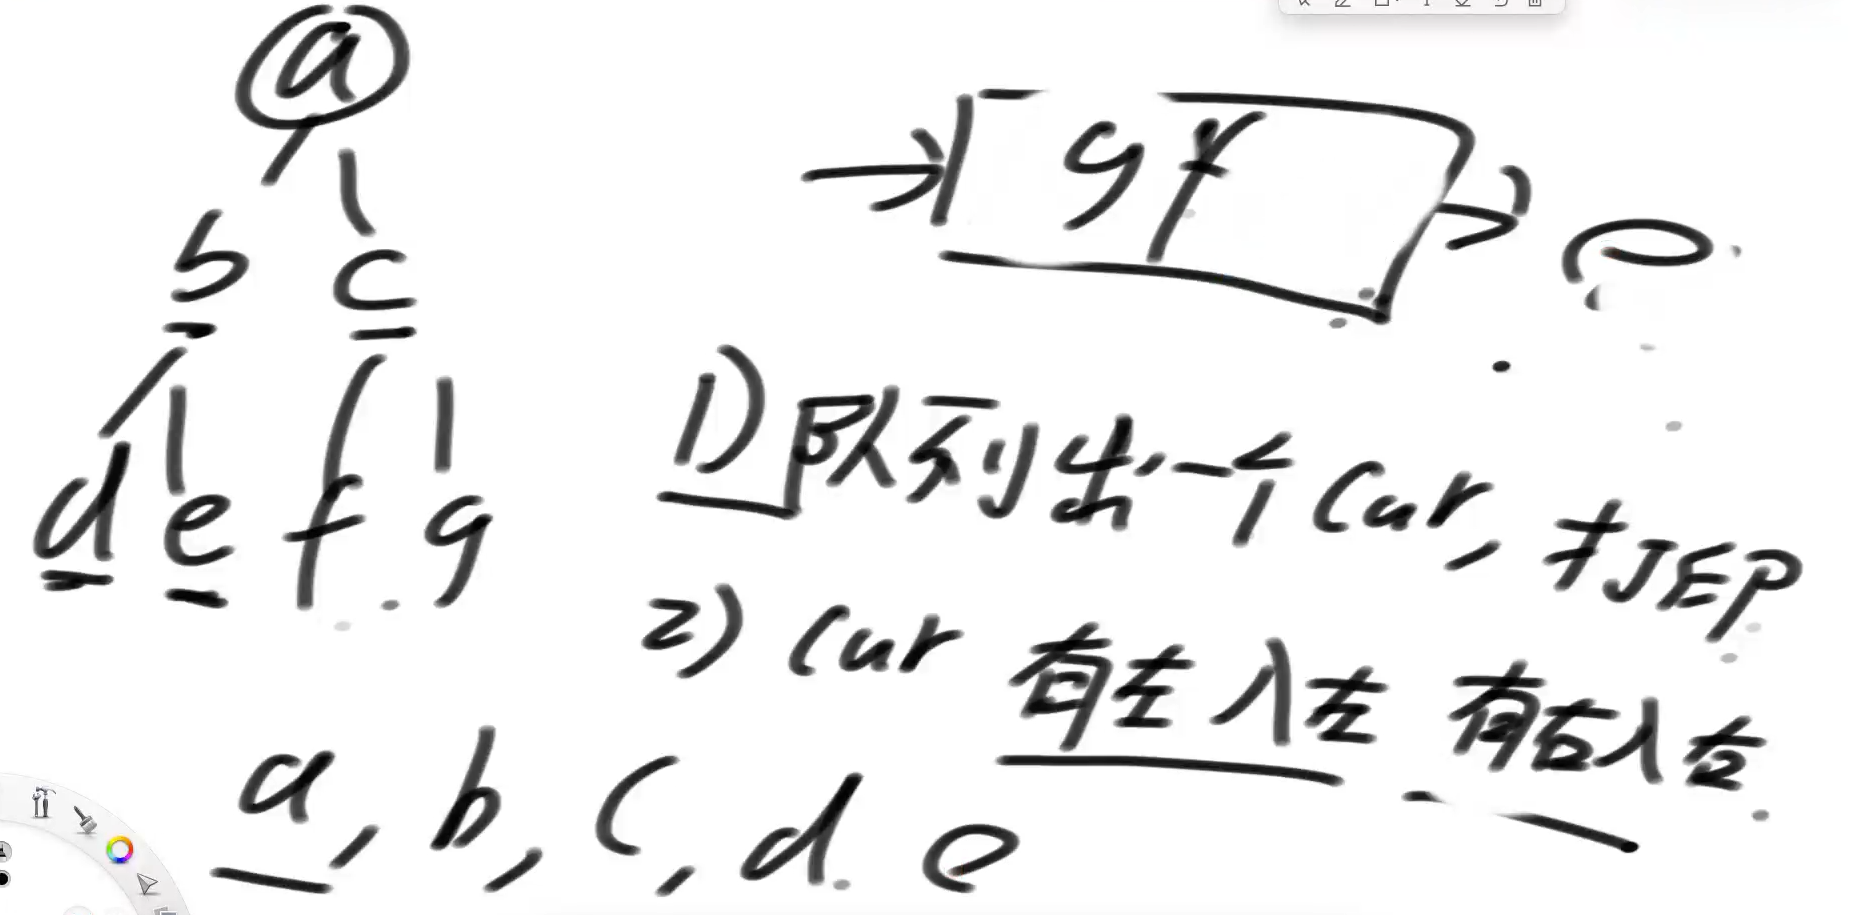 a
b c
d e f g
g f e
1) 队列出一个 Cur, 打印
2) Cur 有左入左 有右入右
a, b, c, d e